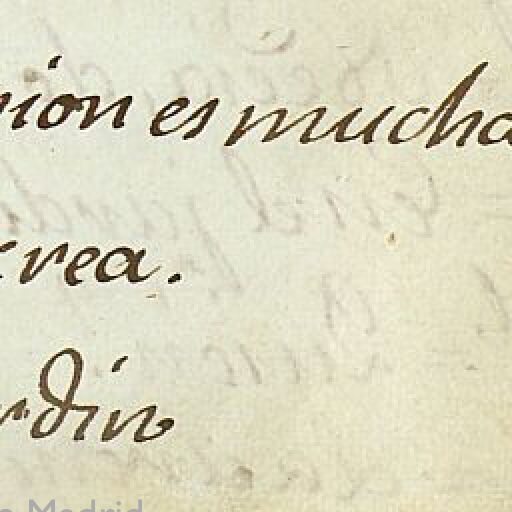 ion es mucha
crea.
rdin
Madrid